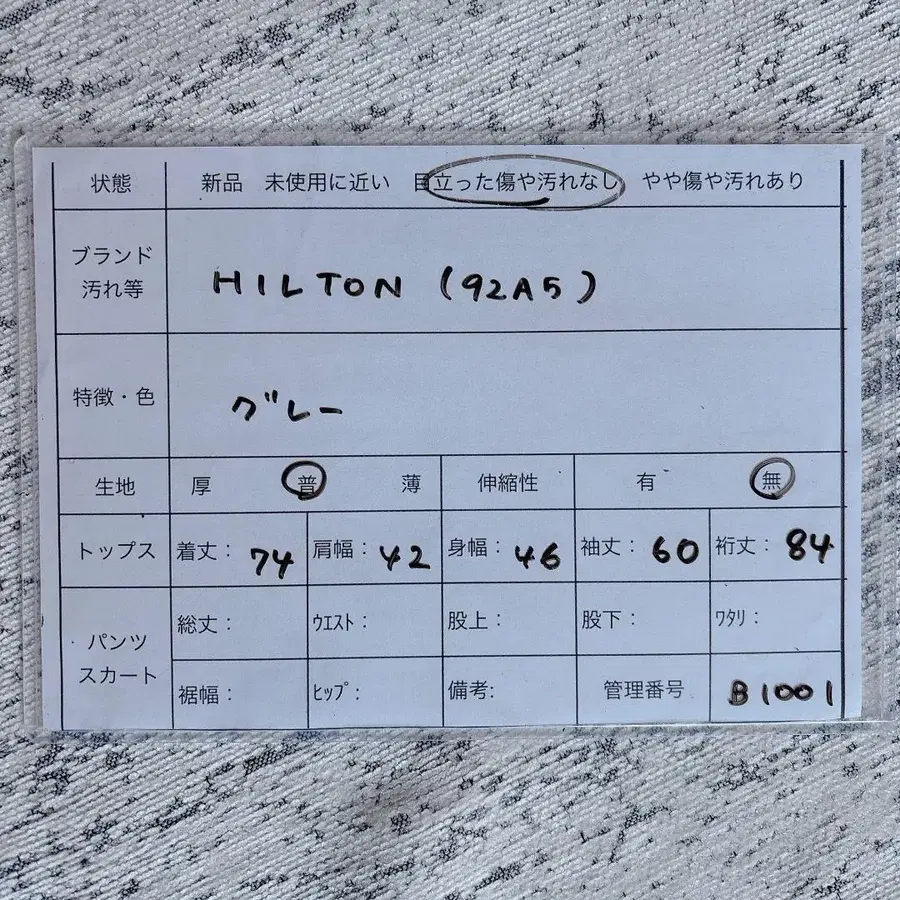 状態 新品 未使用に近い 目立った傷や汚れなし やや傷や汚れあり
ブランド
汚れ等
HILTON (92A5)
特徴・色 グレー
生地 厚 普 薄 伸縮性 有 無
トップス 着丈: 74 肩幅: 42 身幅: 46 袖丈: 60 裄丈: 84
パンツ
スカート
総丈: ウエスト: 股上: 股下: ワタリ:
裾幅: ヒップ: 備考: 管理番号 B1001